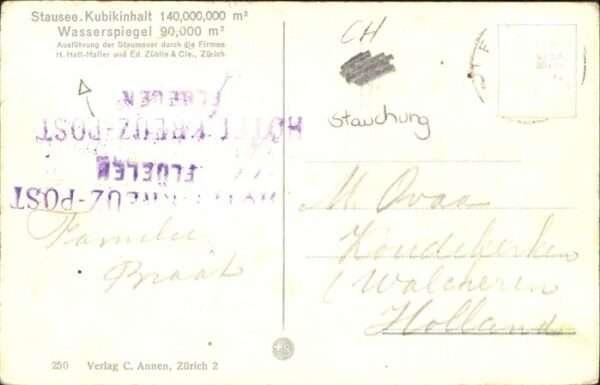 Stausee. Kubikinhalt 140,000,000 m³
Wasserspiegel 90,000 m²
Ausführung der Staumauer durch die Firmen
H. Hatt-Haller und Ed. Züblin & Cie., Zürich
CH
Stauchung
FLUELEN
HOTEL KREUZ-POST
FLUELEN
HOTEL KREUZ-POST
Familie
Braat
M. Ovaa
Koudekerke
(Walcheren
Holland
250 Verlag C. Annen, Zürich 2